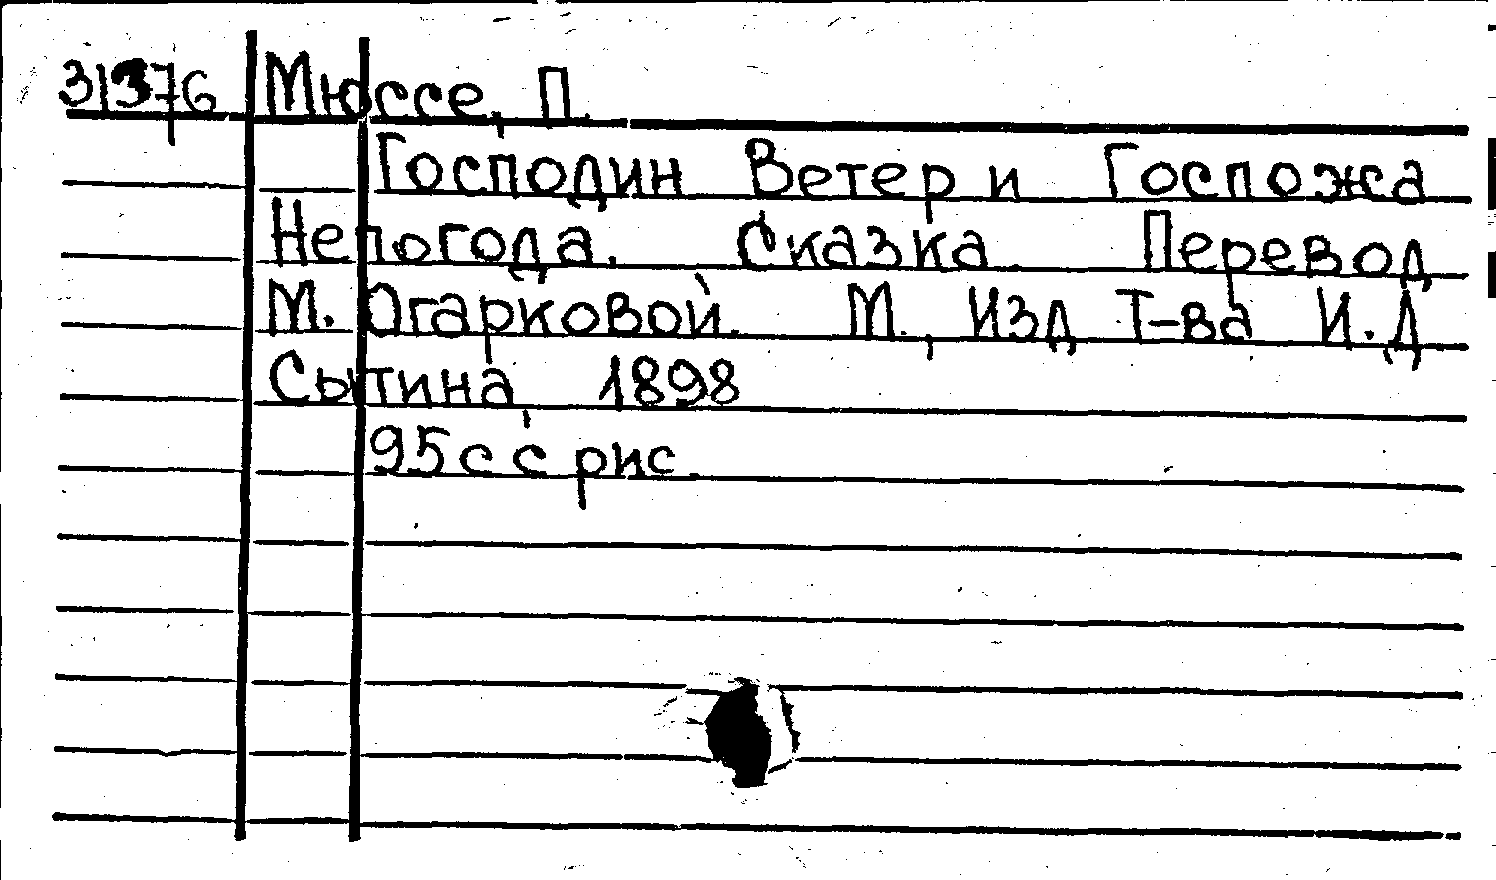 31376 Мюссе, П.
Господин Ветер и Госпожа
Непогода. Сказка. Перевод
М. Огарковой. М., Изд. Т-ва И.Д.
Сытина, 1898
95с с рис.